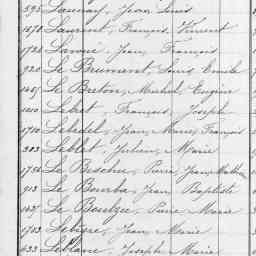 595 Launay, Jean Louis
1670 Laurent, François Vincent
1728 Lavoué, Jean, François
920 Le Brumant, Louis Emile
1465 Le Breton, Michel Eugène
1010 Lebret, François, Joseph
1700 Lebedel, Jean, Marie, François
303 Leblet, Julien, Marie
1756 Le Beschu, Pierre, Jean, Mathurin
913 Le Bourba, Jean Baptiste
1437 Le Boulzec, Pierre Marie
1703 Lebigre, Jean Marie
433 Leblanc, Joseph Marie